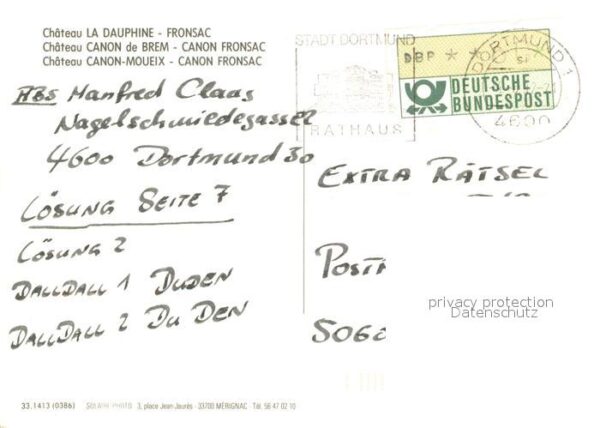 Château LA DAUPHINE - FRONSAC
Château CANON de BREM - CANON FRONSAC
Château CANON-MOUEIX - CANON FRONSAC
ABS Manfred Claas
Nagelschmiedegasse 2
4600 Dortmund 30
LÖSUNG SEITE 7
LÖSUNG 2
DALLDALL 1 DUDEN
DALLDALL 2 DU DEN
33.1413 (0386) SOLAIRE-PHOTO 3, place Jean-Jaurès - 33700 MÉRIGNAC Tél. 56 47 02 10
STADT DORTMUND
RATHAUS
DBP * *
DEUTSCHE
BUNDESPOST
DORTMUND 1
4600
EXTRA RÄTSEL
POST
506
privacy protection
Datenschutz